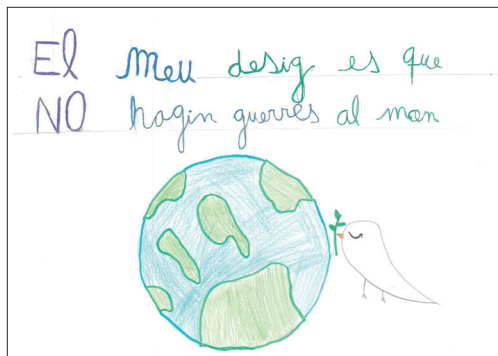 El Meu desig es que
NO hagin guerres al mon